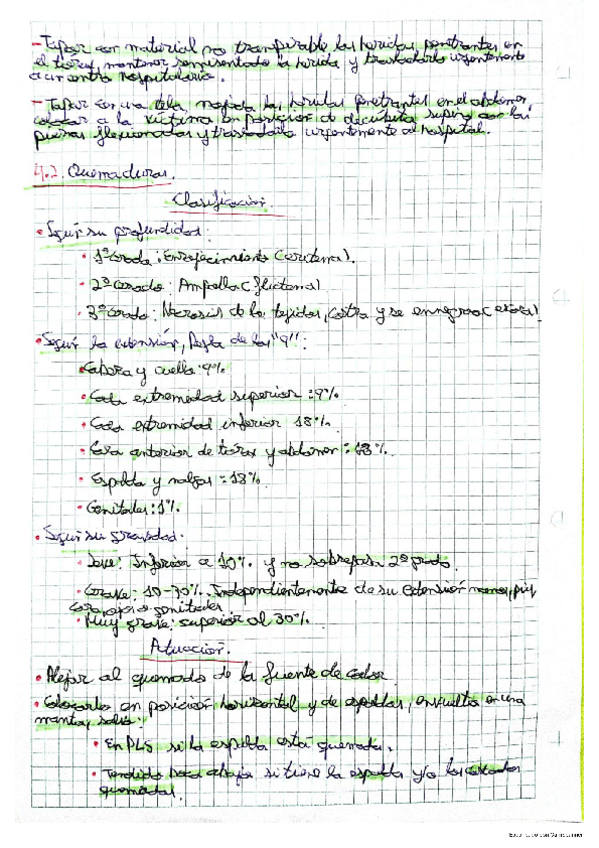 - Tapar con material no transpirable las heridas penetrantes en
el tórax, mantener semisentado la herida y trasladarlo urgentemente
a un centro hospitalario.
- Tapar con una tela mojada las heridas penetrantes en el abdomen,
colocar a la víctima en posición de decúbito supino con las
piernas flexionadas y trasladarla urgentemente al hospital.
4.2. Quemaduras.
Clasificación.
• Según su profundidad:
• 1º Grado: Enrojecimiento (eritema).
• 2º Grado: Ampolla (flictena)
• 3º Grado: Necrosis de los tejidos, costra y se ennegrece (escara)
• Según la extensión, Regla de los "9":
• Cabeza y cuello: 9%
• Cada extremidad superior: 9%
• Cada extremidad inferior 18%.
• Cara anterior de tórax y abdomen: 18%.
• Espalda y nalgas: 18%
• Genitales: 1%
• Según su gravedad.
• Leve: Inferior a 10% y no sobrepasa 2º grado.
• Grave: 10-30%. Independientemente de su extensión manos, pies,
cara, ojos o genitales
• Muy grave: superior al 30%.
Actuación.
• Alejar al quemado de la fuente de calor.
• Colocarlo en posición horizontal y de espaldas, envuelto en una
manta, salvo:
• En PLS si la espalda está quemada.
• Tendido boca abajo si tiene la espalda y/o los costados
quemados.